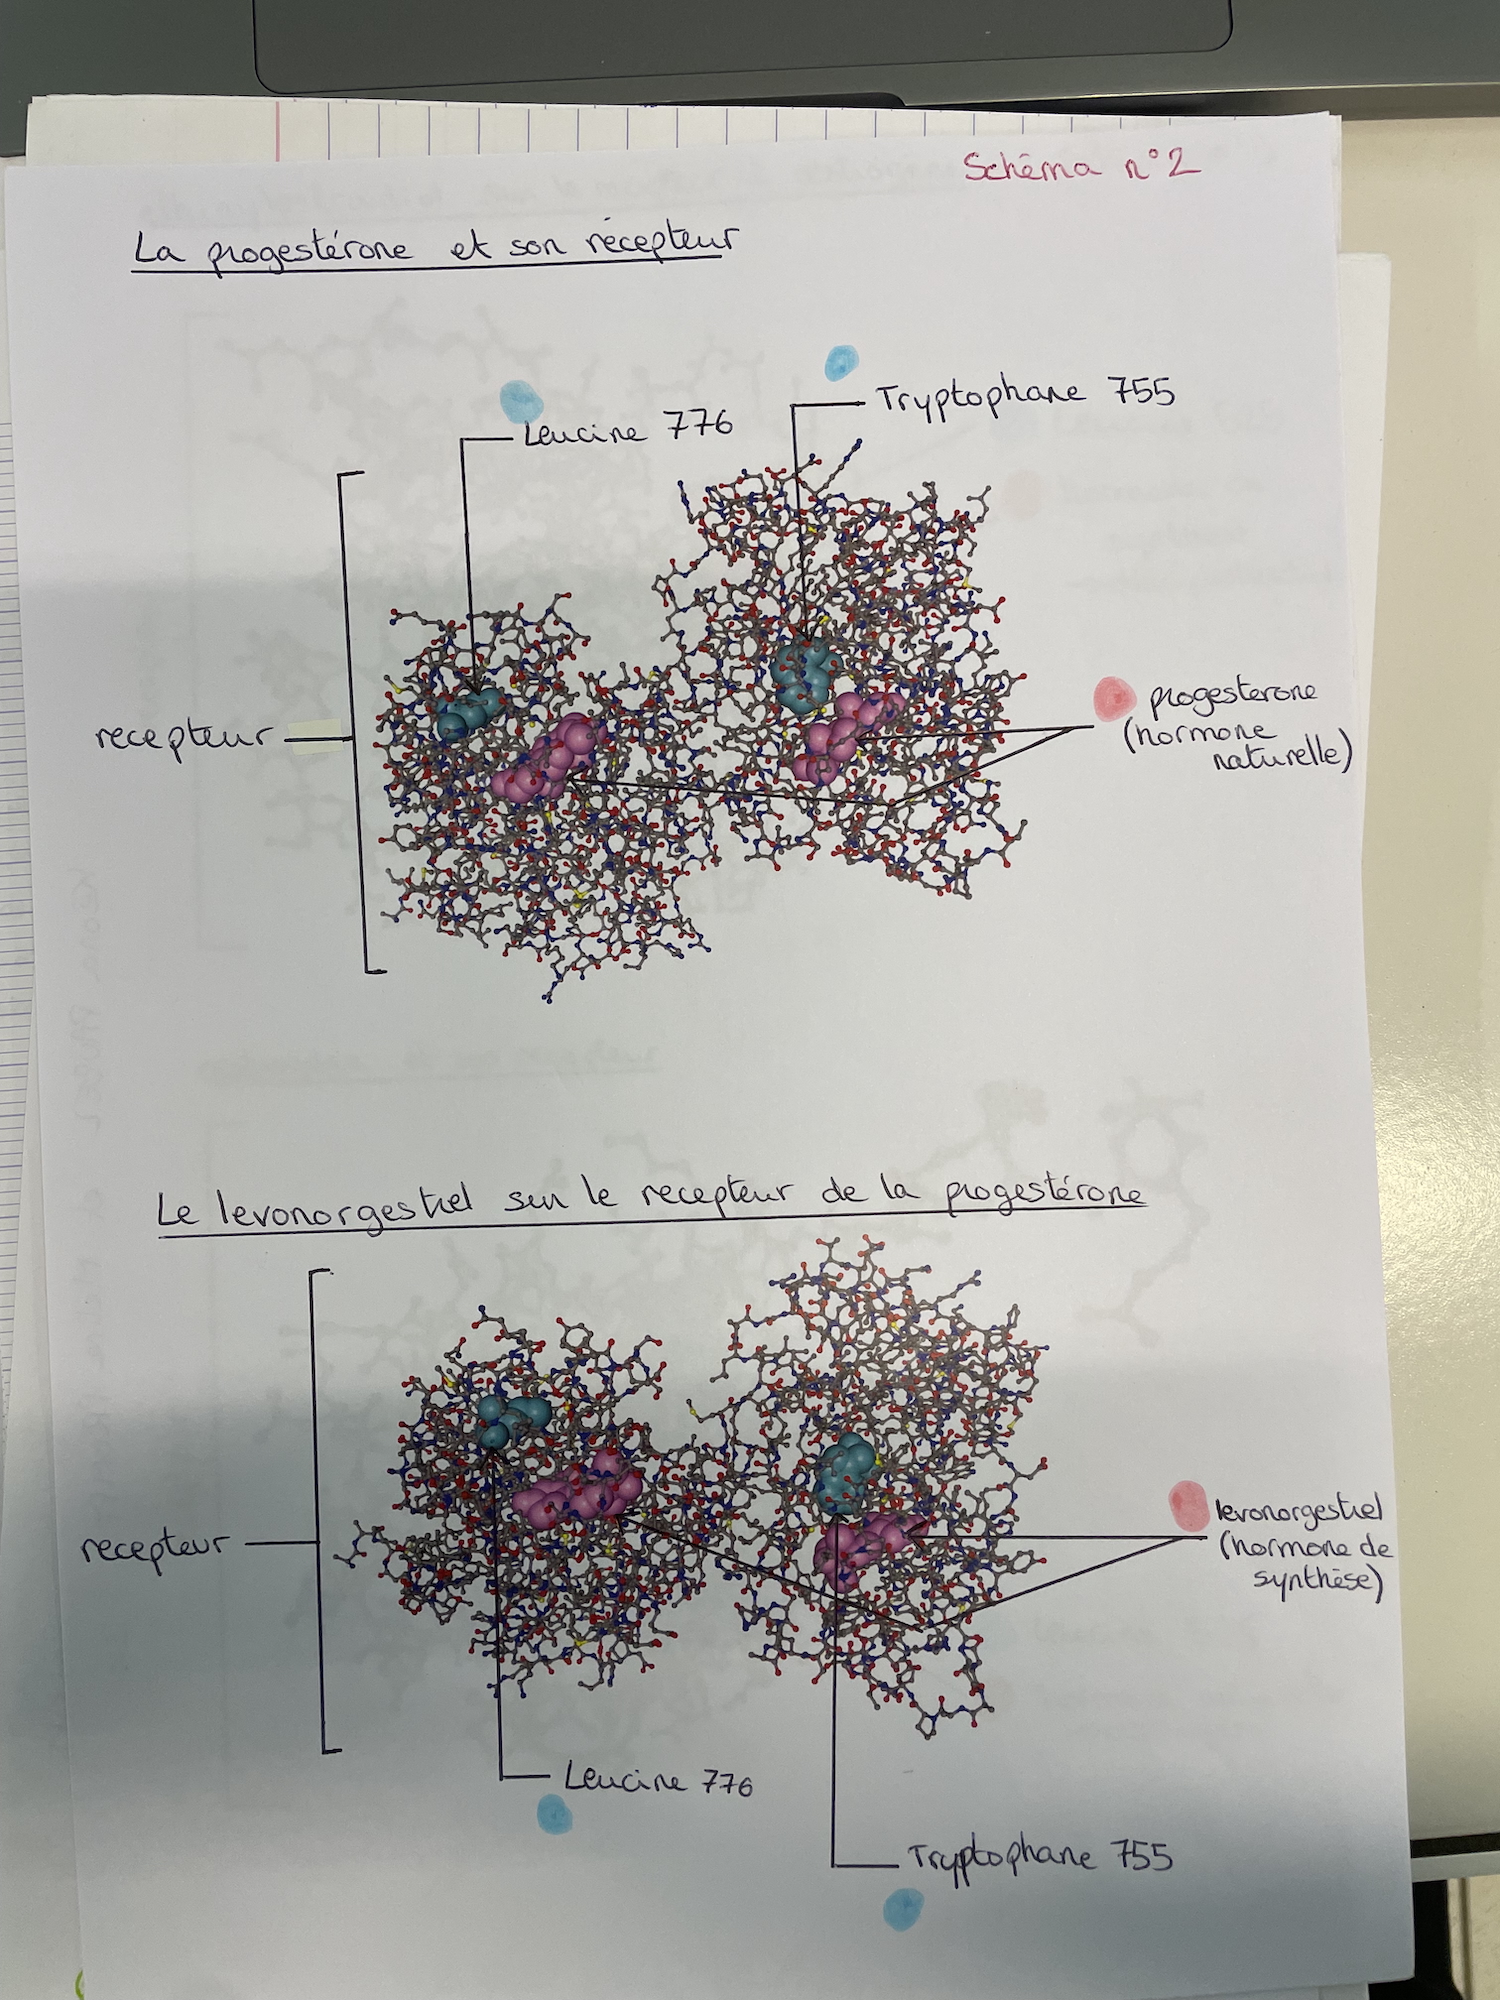 Schéma n°2
La progestérone et son récepteur
Tryptophane 755
Leucine 776
progesterone
(hormone
naturelle)
recepteur
Le levonorgestrel sur le recepteur de la progestérone
levonorgestrel
(hormone de
synthèse)
recepteur
Leucine 776
Tryptophane 755